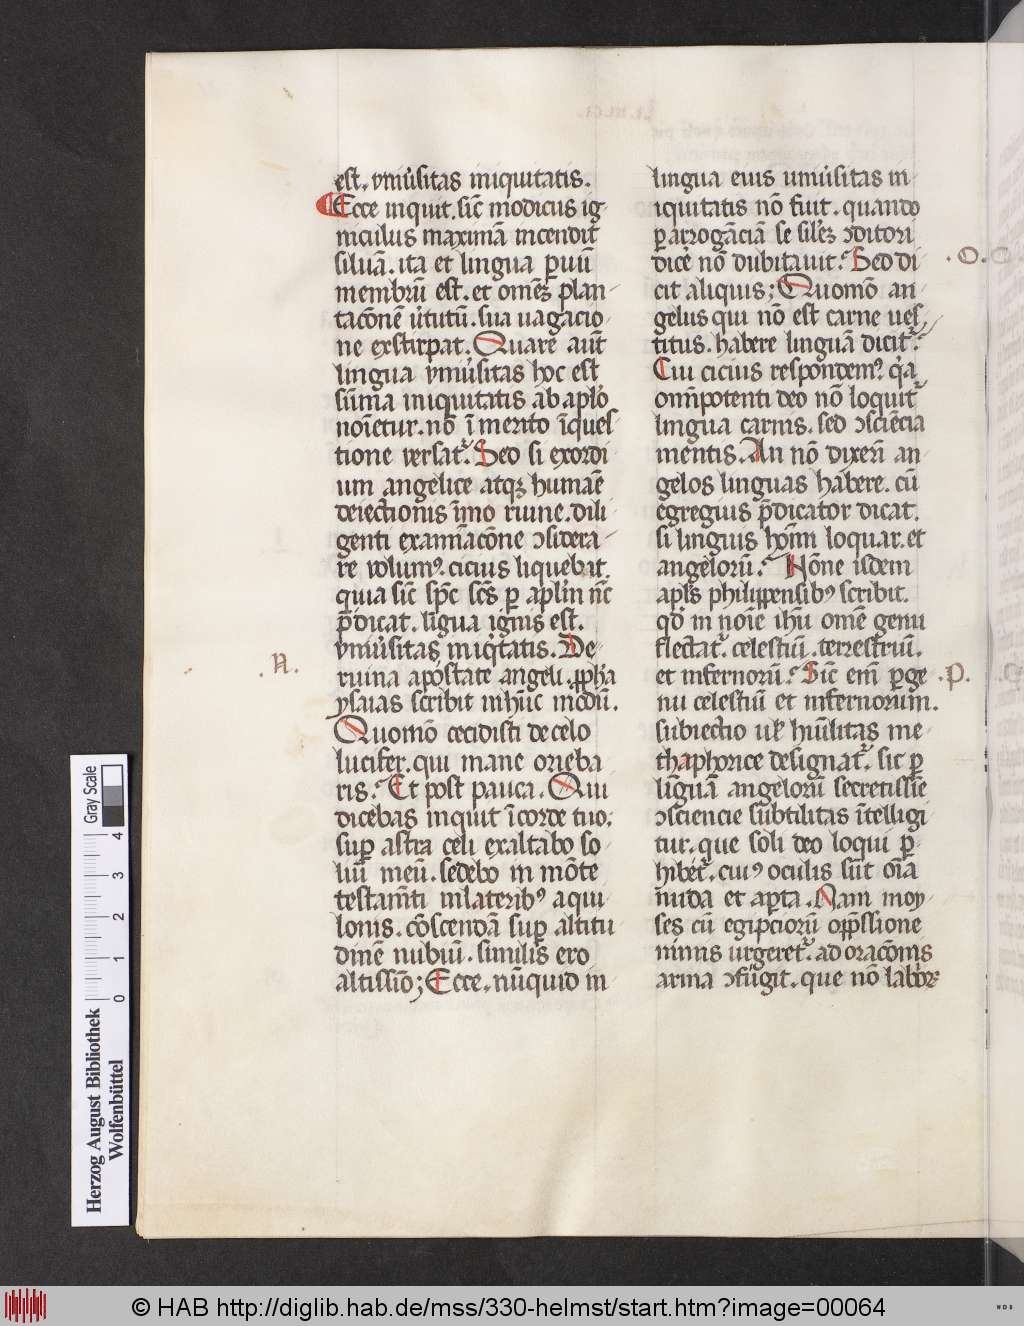 est. vniu͛sitas iniquitatis.
Ecce inquit. sic̄ modicus ig
niculus maximā incendit
siluā. ita et lingua ꝑuū
membrū est. et omēꝫ plan
tacōnē u͛tutū. sua uagacio
ne exstirpat. Quare aut̄
lingua vniu͛sitas hoc est
sūma iniquitatis ab aplo͛
noīetur. nō ī merito īques
tione versat᷑. Sed si exordi
um angelice atqꝫ humāe
deiectionis īmo ruine. dili
genti examīacōne ↄsidera
re volum᷒. cicius liquebit.
quia sic̄ sp̄c sc̄s ꝑ apl̄m nc̄
p̄dicat. līgua ignis est.
vniu͛sitas miq͛tatis. De
ruina apostate angeli. ꝓph̄a
ysaias scribit inhūc modū.
Quomō cecidisti de celo
lucifer. qui mane orieba
ris. Et post pauca. Qui
dicebas inquit ī corde tuo.
suꝑ astra celi exaltabo so
liū meū. sedebo in mōte
testam̄ti in laterib᷒ aqui
lonis. cōscendā suꝑ altitu
dinē nubiū. similis ero
altissīo; Ecce. nūquid in
.N.
lingua eius uniu͛sitas in
iquitatis nō fuit. quando
ꝑ arrogāciā se sile͛ꝫ ↄditori
dice͛ nō dubitauit. Sed di
cit aliquis; Quomō an
gelus qui nō est carne ues
titus. habere linguā dicit᷑.
Cui cicius respondem᷒ q͛a
om̄potenti deo nō loquit᷑
lingua carnis. sed ↄsciēcia
mentis. An nō dixerī an
gelos linguas habere. cū
egregius p̄dicator dicat.
si linguis hoīm loquar. et
angelorū. Nōne isdem
apl̄s philippensib᷒ scribit.
qđ in noīe ihū omē genu
flectat᷑. celestiū. terrestruī.
et infernorū. Sic̄ em̄ ꝑ ge
nu celestiū et infernorum.
subiectio ul̄ hūilitas me
thaphorice designat᷑. sic ꝑ
līguā angelorū secretissīe
ↄsciencie subtilitas ītelligi
tur. que soli deo loqui ꝑ
hibet᷑. cui᷒ oculis sūt oīa
nuda et aꝑta. Nam moy
ses cū egipciorū opp̄ssione
nimis urgeret᷑. ad oracōnis
arma ↄfugit. que nō labioꝝ
.O.
.P.
Herzog August Bibliothek
Wolfenbüttel
0 1 2 3 4
Gray Scale
© HAB http://diglib.hab.de/mss/330-helmst/start.htm?image=00064